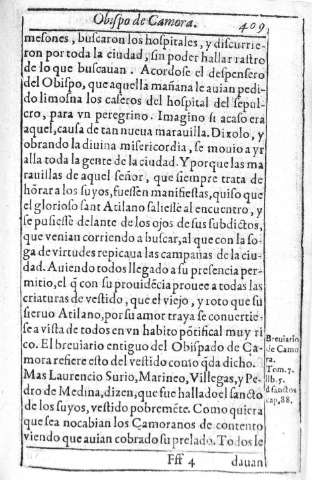 Obispo de Çamora. 409
mesones, buscaron los hospitales, y discurrie-
ron por toda la ciudad, sin poder hallar rastro
de lo que buscauan. Acordose el despensero
del Obispo, que aquella mañana le auian pedi-
do limosna los caseros del hospital del sepul-
cro, para vn peregrino. Imagino si acaso era
aquel, causa de tan nueua marauilla. Dixolo, y
obrando la diuina misericordia, se mouio a yr
alla toda la gente de la ciudad. Y porque las ma
rauillas de aquel señor, que siempre trata de
hõrar a los suyos, fuessen manifiestas, quiso que
el glorioso sant Atilano saliesse al encuentro, y
se pusiesse delante de los ojos de sus subdictos,
que venian corriendo a buscar, al que con la so-
ga de virtudes repicaua las campañas de la ciu-
dad. Auiendo todos llegado a su presencia per-
mitio, el q̃ con su prouidẽcia prouee a todas las
criaturas de vestido, que el viejo, y roto que su
sieruo Atilano, por su amor traya se conuertie-
se a vista de todos en vn habito põtifical muy ri
co. El breuiario entiguo del Obispado de Ça-
mora refiere esto del vestido como q̃da dicho.
Mas Laurencio Surio, Marineo, Villegas, y Pe-
dro de Medina, dizen, que fue hallado el sancto
de los suyos, vestido pobremẽte. Como quiera
que sea nocabian los Çamoranos de contento
viendo que auian cobrado su prelado. Todos le
Fff 4 dauan
Breuiario
de Camo
ra.
Tom. 7.
lib. 5.
d sanctos
cap, 88.